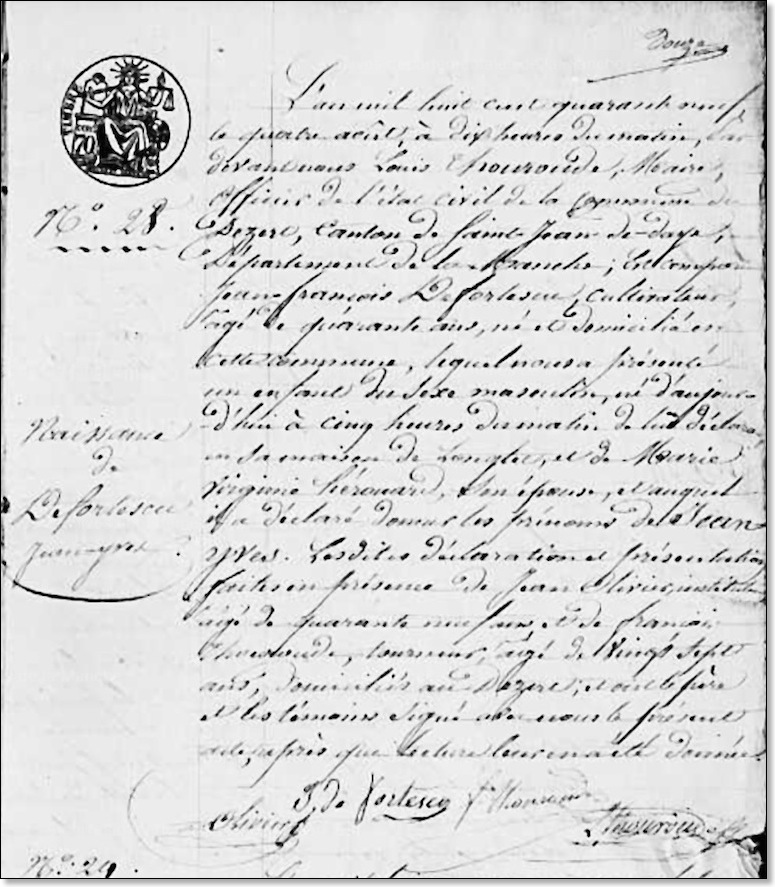 Douze
L'an mil huit cent quarante neuf
le quatre août, à dix heures du matin, par
devant nous Louis Thouroude, Maire,
officier de l'état civil de la Commune de
Dezert, Canton de Saint-Jean-de-daye,
Département de la Manche; Est comparu
Jean-françois Defortescu, cultivateur,
âgé de quarante ans, né et domicilié en
cette commune, lequel nous a présenté
un enfant du sexe masculin, né d'aujour-
-d'hui à cinq heures du matin de lui déclarant
en sa maison de et de Marie
virginie hérouard, son épouse, et auquel
il a déclaré donner les prénoms de Jean
yves. Lesdites déclaration et présentation
faites en présence de Jean Olivier, instituteur
âgé de quarante neuf ans, et de françois
Thouroude, tourneur, âgé de vingt sept
ans, domiciliés au Dezert, et ont le père
et les témoins signé avec nous le présent
acte, après que lecture leur en a été donnée.
J. de Fortescu f. Thouroude
Olivier Thouroude
TIMBRE
70
N.° 28.
Naissance
de
Defortescu
Jean-yves
N.° 29.